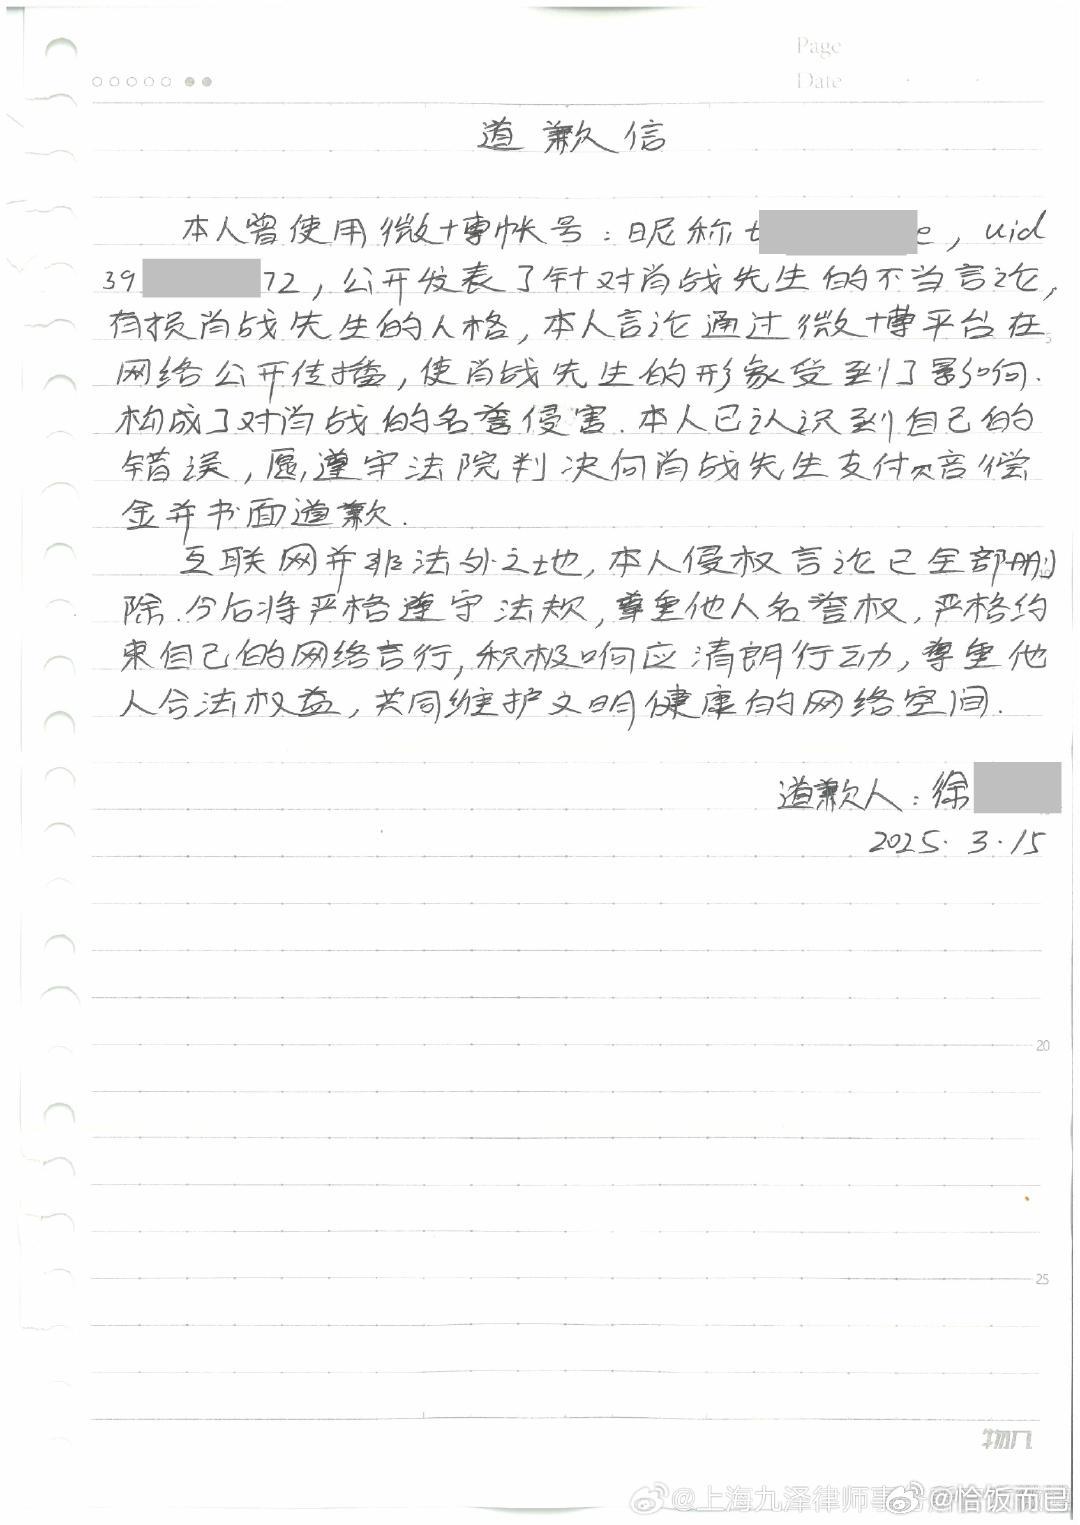 Page
Date
道歉信
本人曾使用微博帐号：昵称t e，uid
39 72，公开发表了针对肖战先生的不当言论，
有损肖战先生的人格，本人言论通过微博平台在
网络公开传播，使肖战先生的形象受到了影响.
构成了对肖战的名誉侵害.本人已认识到自己的
错误，愿遵守法院判决向肖战先生支付赔偿
金并书面道歉.
互联网并非法外之地，本人侵权言论已全部删
除.今后将严格遵守法规，尊重他人名誉权，严格约
束自己的网络言行，积极响应清朗行动，尊重他
人合法权益，共同维护文明健康的网络空间.
道歉人：徐
2025.3.15
20
25
物几
@上海九泽律师事
@恰饭而已